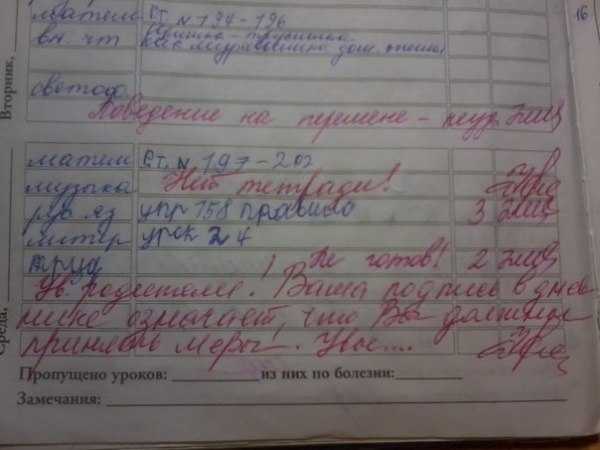 Вторник,
матем Р.Т. N 194-196
16
вн. чт
светоф
Поведение на перемене - неуд.
Среда,
матем Р.Т. N 197-202
музыка Нет тетради!
рус. яз упр 158 правило 3
литер урок 24
труд ! Не готов! 2
Ув. родители! Ваша подпись в днев
нике означает, что Вы должны
принять меры! Увы....
Пропущено уроков: из них по болезни:
Замечания: